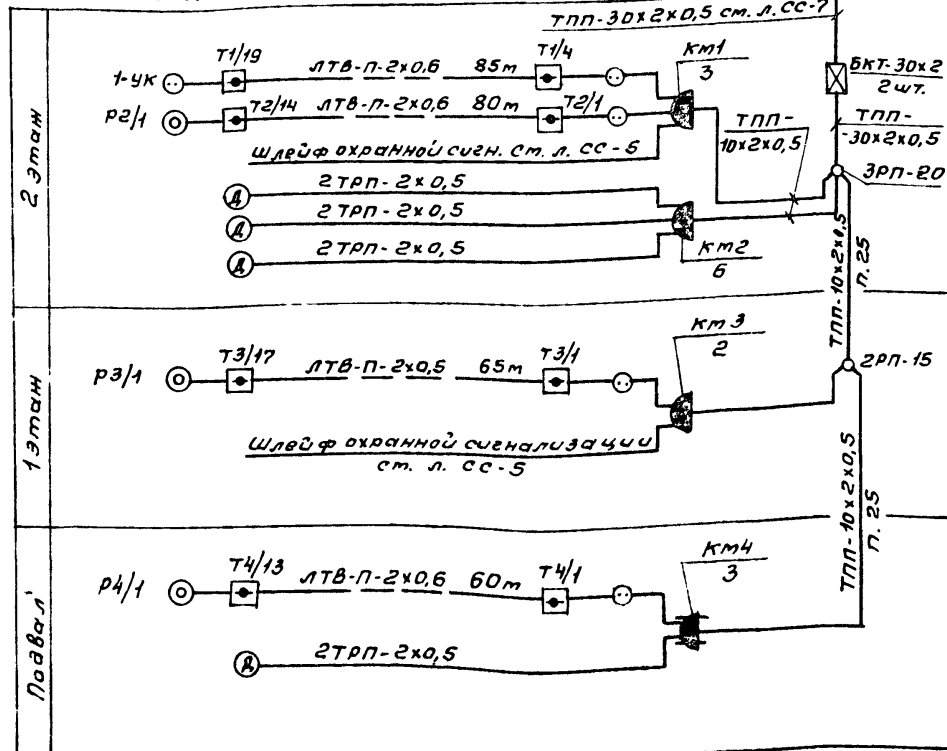 ТПП-30х2х0,5 см. л. СС-7
2 этаж
1-УК
Т1/19
ЛТВ-П-2х0,6 85м
Т1/4
КМ1
3
БКТ-30х2
2 шт.
Р2/1
Т2/14
ЛТВ-П-2х0,6 80м
Т2/1
ТПП-
10х2х0,5
ТПП-
-30х2х0,5
шлейф охранной сигн. см. л. СС-5
3РП-20
Д
2ТРП-2х0,5
Д
2ТРП-2х0,5
Д
2ТРП-2х0,5
КМ2
6
ТПП-10х2х0,5
п. 25
1 этаж
Р3/1
Т3/17
ЛТВ-П-2х0,5 65м
Т3/1
КМ3
2
2РП-15
Шлейф охранной сигнализации
см. л. СС-5
ТПП-10х2х0,5
п. 25
Подвал
Р4/1
Т4/13
ЛТВ-П-2х0,6 60м
Т4/1
КМ4
3
Д
2ТРП-2х0,5